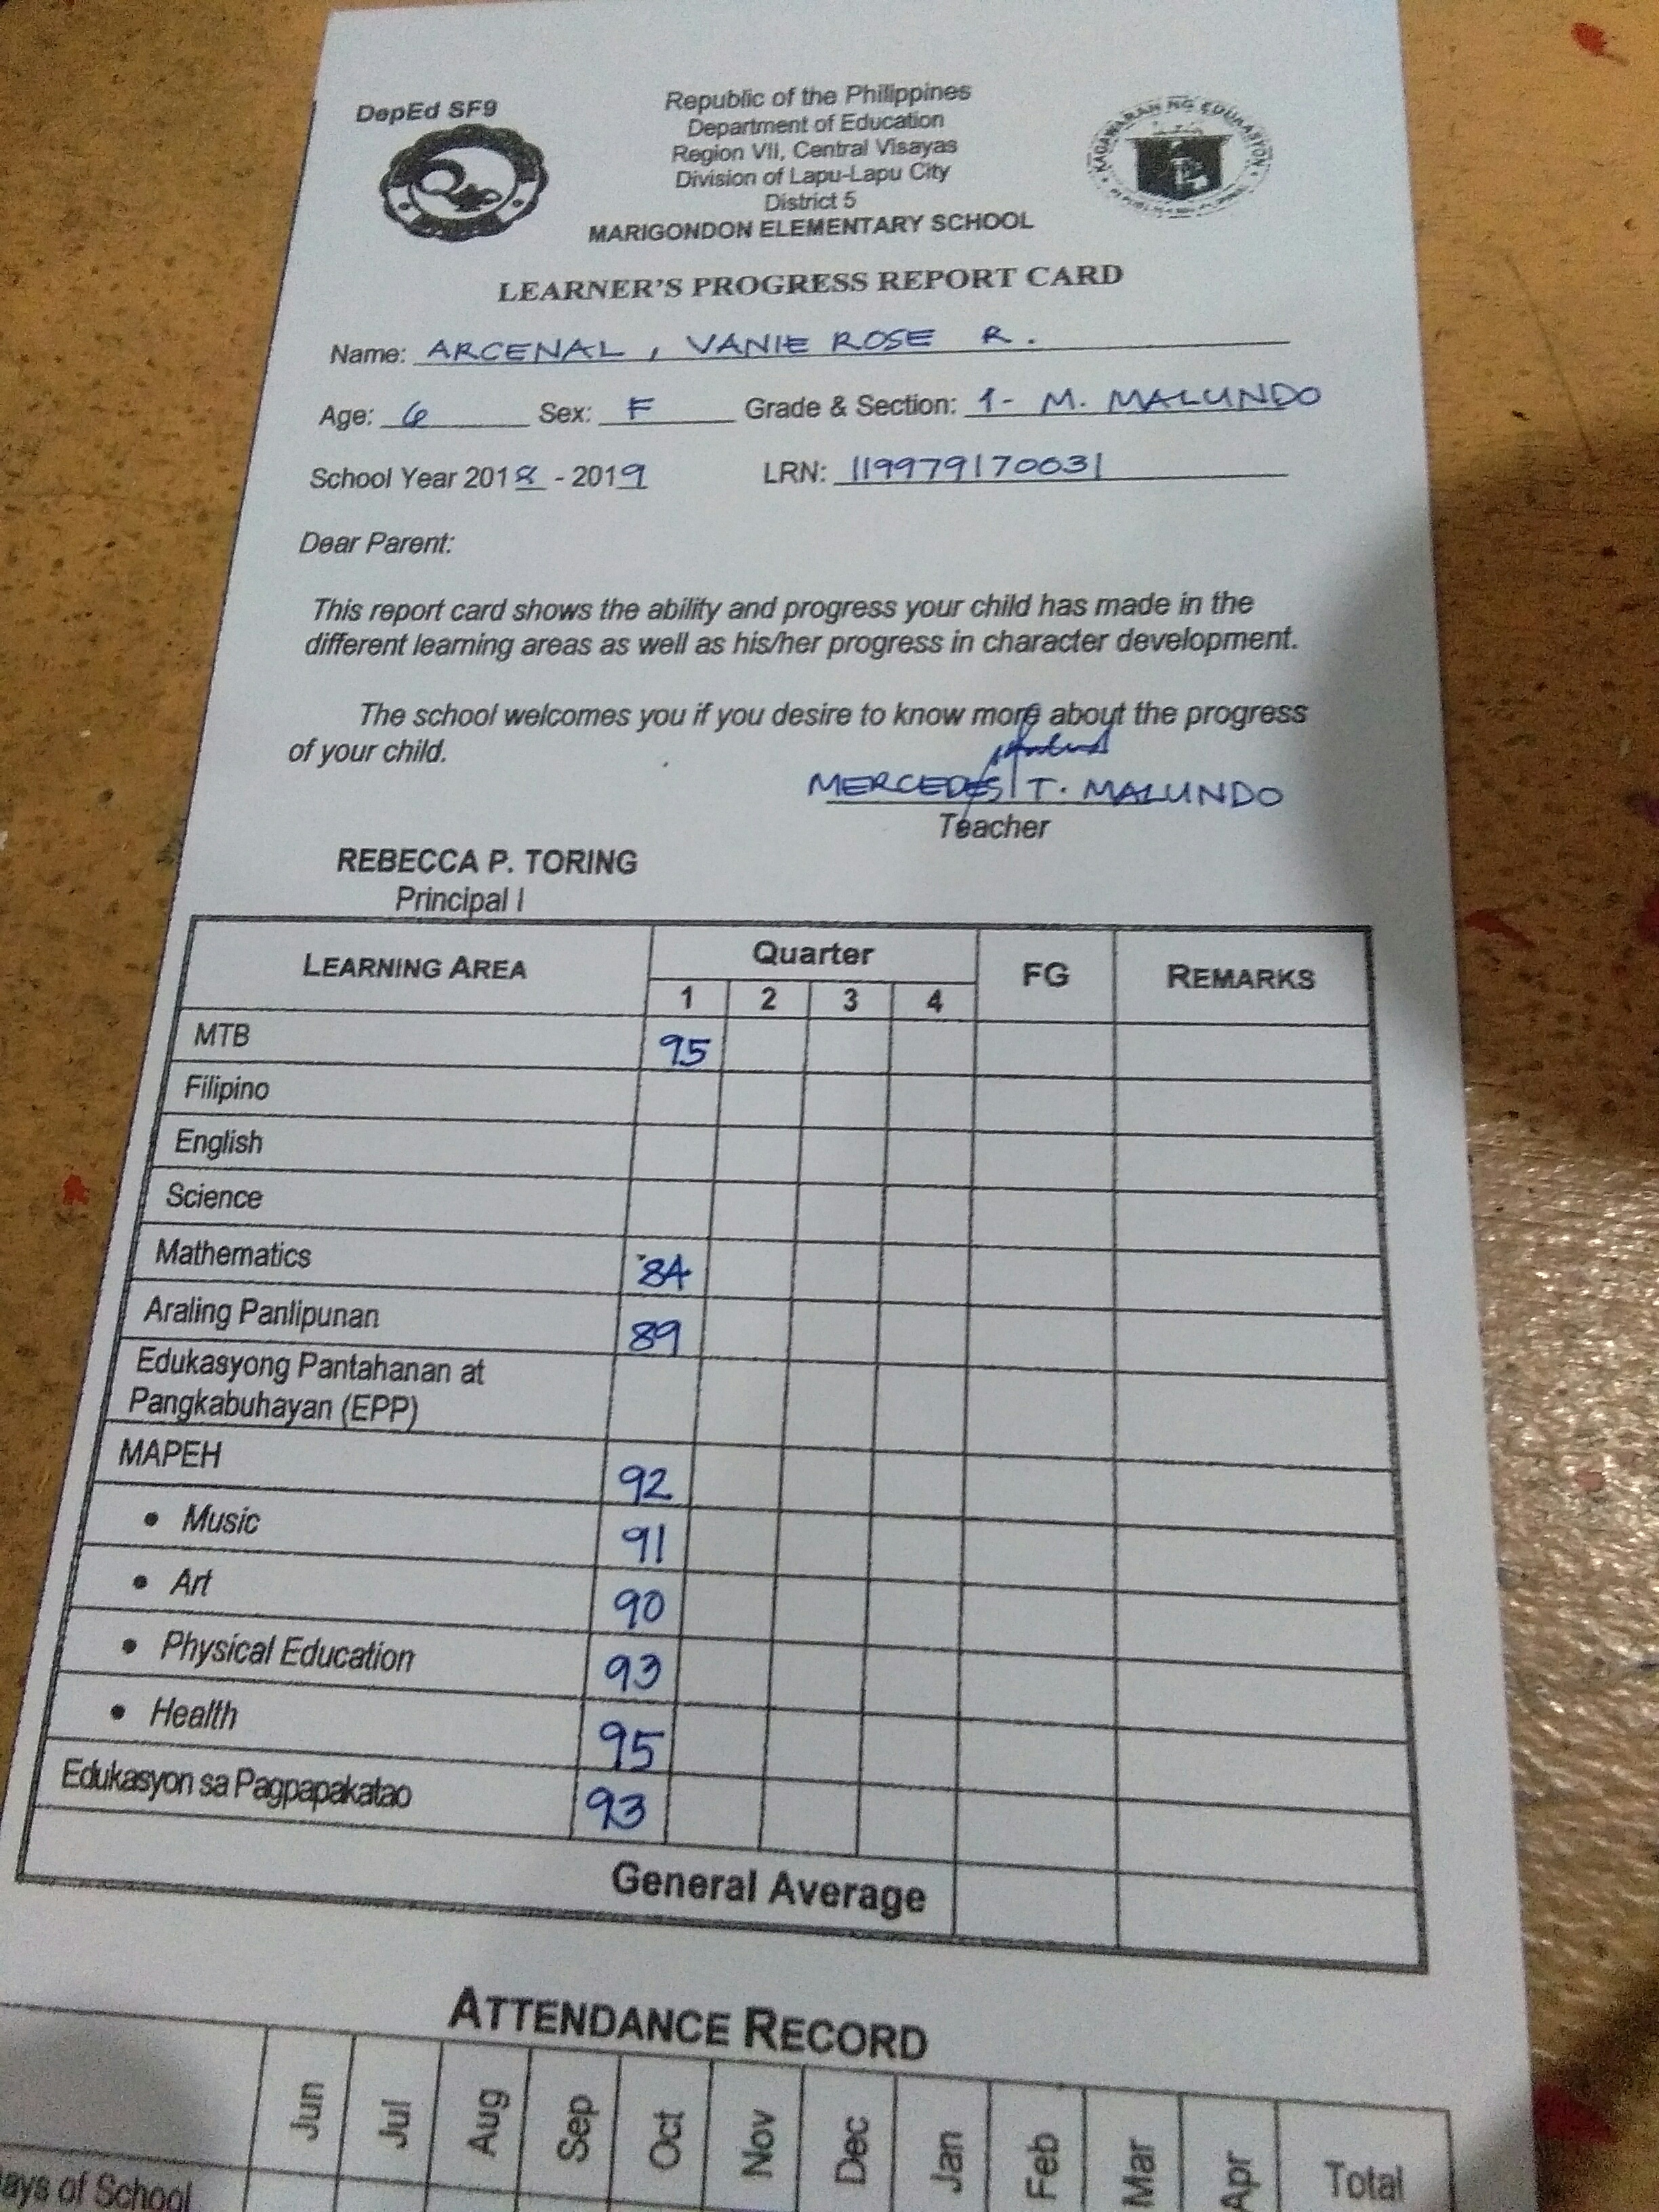 DepEd SF9
Republic of the Philippines
Department of Education
Region VII, Central Visayas
Division of Lapu-Lapu City
District 5
MARIGONDON ELEMENTARY SCHOOL
KAGAWARAN NG EDUKASYON
LEARNER'S PROGRESS REPORT CARD
Name: ARCENAL, VANIE ROSE R.
Age: 6 Sex: F Grade & Section: 1- M. MALUNDO
School Year 2018 - 2019 LRN: 119979170031
Dear Parent:
This report card shows the ability and progress your child has made in the
different learning areas as well as his/her progress in character development.
The school welcomes you if you desire to know more about the progress
of your child.
MERCEDES T. MALUNDO
Teacher
REBECCA P. TORING
Principal I
LEARNING AREA Quarter FG REMARKS
1 2 3 4
MTB 95
Filipino
English
Science
Mathematics 84
Araling Panlipunan 89
Edukasyong Pantahanan at
Pangkabuhayan (EPP)
MAPEH 92
• Music 91
• Art 90
• Physical Education 93
• Health 95
Edukasyon sa Pagpapakatao 93
General Average
ATTENDANCE RECORD
Jun Jul Aug Sep Oct Nov Dec Jan Feb Mar Apr Total
of School